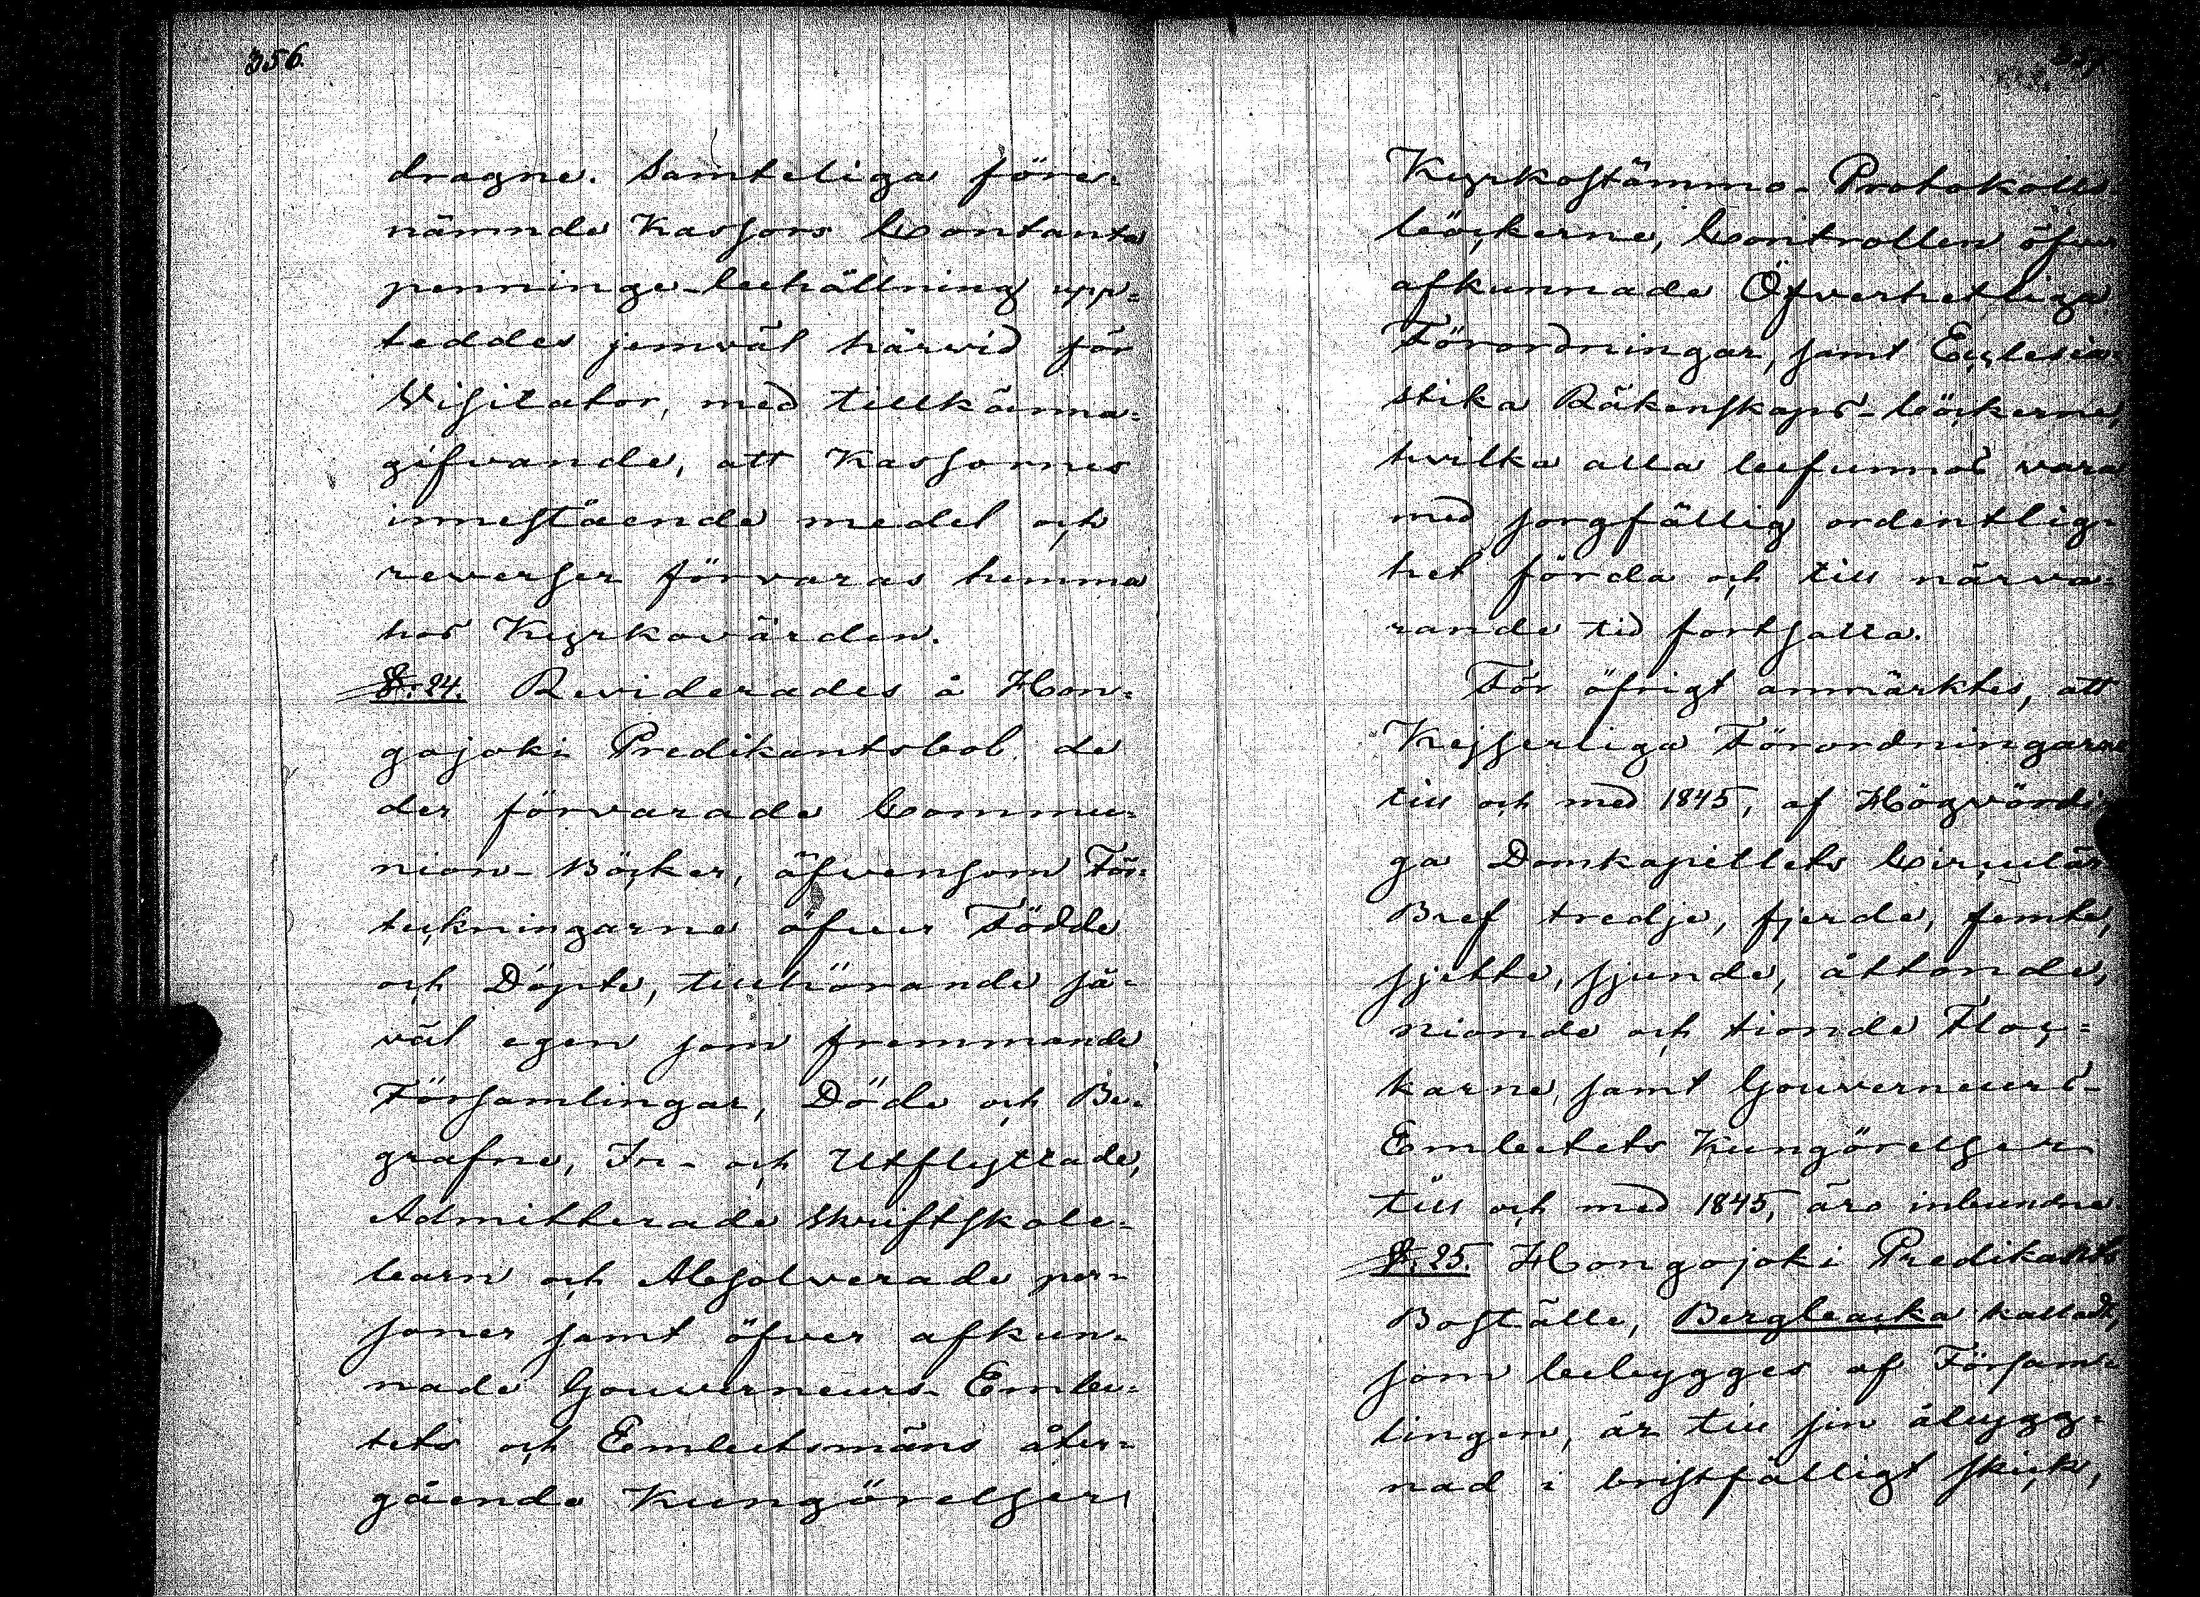 356
dragne. Samteliga före-
nämnde Kassors Contanta
penninge-behållning upp-
teddes jemväl härvid för
Visitator, med tillkänna-
gifvande, att Kassornes
innestående medel och
reverser förvaras hemma
hos Kyrkovärden.
§. 24. Reviderades å Hon-
gojoki Predikantsbol de
der förvarade Commu-
nion-Böcker, äfvensom För-
teckningarne öfver Födde
och Döpte, tillhörande så-
väl egen som fremmande
Församlingar, Döde och Be-
grafne, In- och Utflyttade,
Admitterade Skriftskole-
barn och Absolverade per-
soner samt öfver afkun-
nade Gouverneurs-Embe-
tets och Embetsmäns åter-
gående Kungörelser
Kyrkostämmo-Protokolls
böckerne, Controllen öfver
afkunnade Öfverhetliga
Förordningar, samt Ecclesia-
stika Räkenskaps-böckerne,
hvilka alla befunnos vara
med sorgfällig ordentlig-
het förda och till närva-
rande tid fortsatta.
För öfrigt anmärktes, att
Kejserliga Förordningarne
till och med 1845, af Högvördi-
ga Domkapitlets Circulär
Bref tredje, fjerde, femte,
sjette, sjunde, åttonde,
nionde och tionde Floc-
karne, samt Gouverneurs-
Embetets Kungörelser
till och med 1845, äro inbundne
§. 25. Hongojoki Predikants
Boställe, Bergbacka kalladt,
som bebygges af Försam-
lingen, är till sin åbygg-
nad i bristfälligt skick,